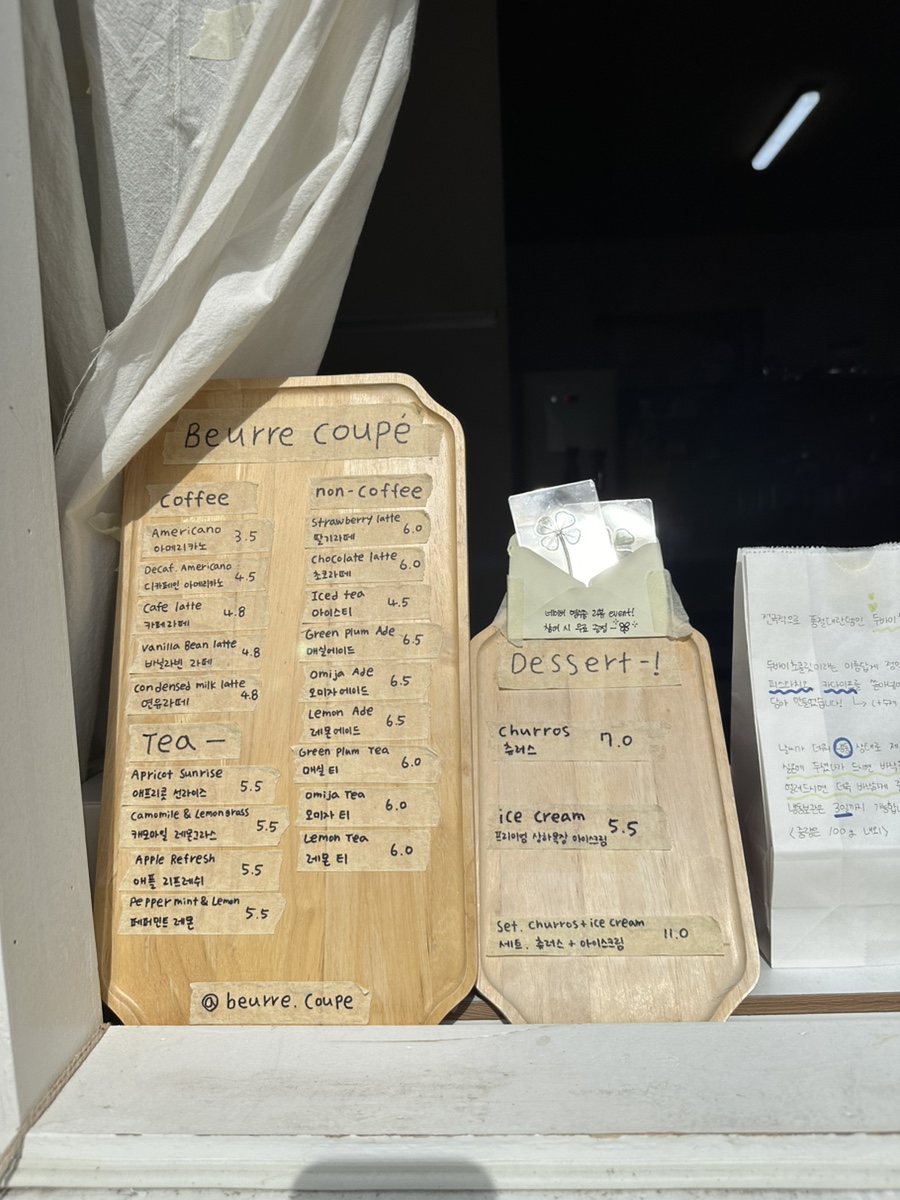 Beurre coupé
coffee
Americano 3.5
아메리카노
Decaf. Americano 4.5
디카페인 아메리카노
Cafe latte 4.8
카페라떼
Vanilla Bean latte 4.8
바닐라빈 라떼
condensed milk latte 4.8
연유라떼
Tea —
Apricot Sunrise 5.5
애프리콧 선라이즈
Camomile & Lemongrass 5.5
캐모마일 레몬그라스
Apple Refresh 5.5
애플 리프레쉬
Peppermint & Lemon 5.5
페퍼민트 레몬
non-coffee
Strawberry latte 6.0
딸기라떼
Chocolate latte 6.0
초코라떼
Iced tea 4.5
아이스티
Green plum Ade 6.5
매실에이드
Omija Ade 6.5
오미자에이드
Lemon Ade 6.5
레몬에이드
Green plum Tea 6.0
매실 티
Omija Tea 6.0
오미자 티
Lemon Tea 6.0
레몬 티
@ beurre.coupe
네이버 영수증 리뷰 event!
참여 시 무료 증정 -
Dessert-!
churros 7.0
츄러스
ice cream 5.5
프리미엄 상하목장 아이스크림
Set. churros + ice cream 11.0
세트. 츄러스 + 아이스크림
두바이초콜릿이라는 이름답게
피스타치오 카다이프를
담아 만들었습니다!
날씨가 더워
실온에
더욱 바삭하게
냉동보관은 3일까지
<중량은 100g 내외>